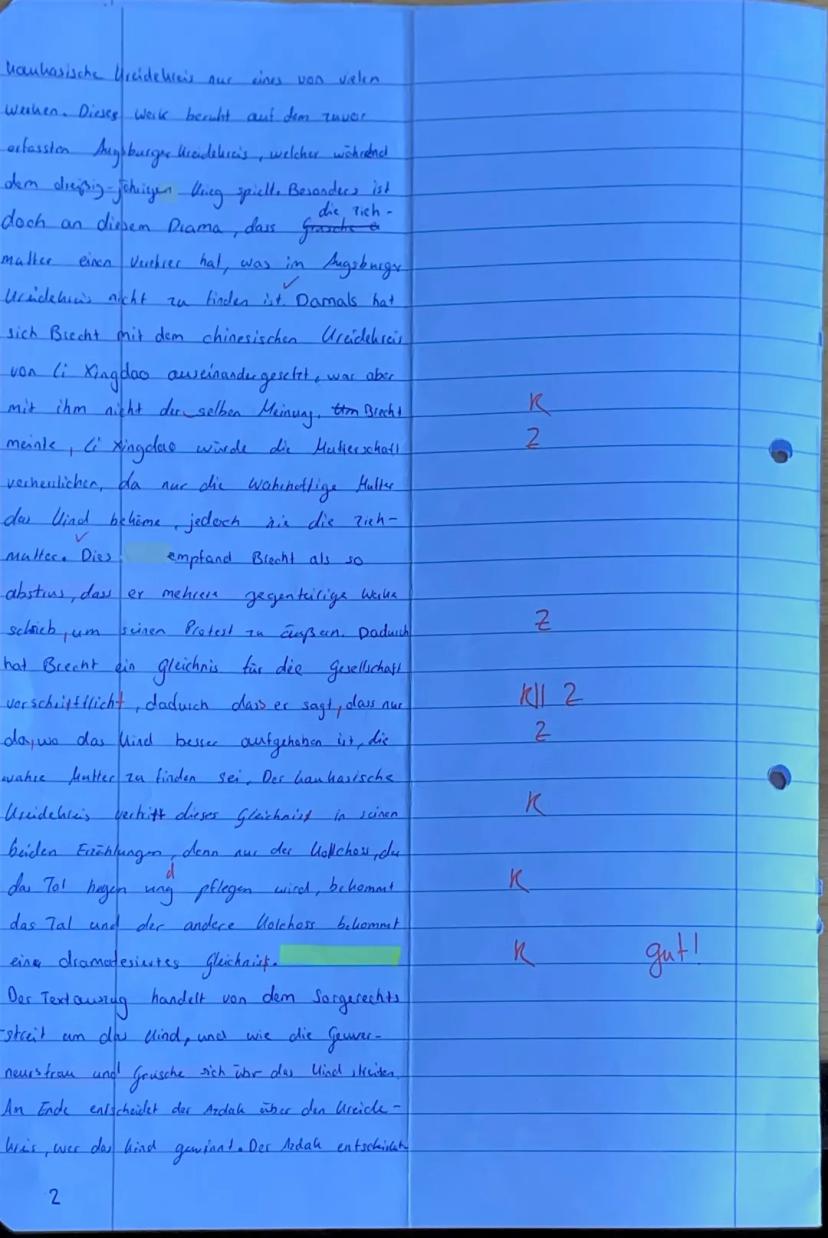 kaukasische Kreidekreis nur eines von vielen
werken. Dieses Werk beruht auf dem zuvor
erfassten Augsburger Kreidekreis, welcher während
dem dreißig-jährigen Krieg spielt. Besonders ist
die Zieh-
doch an diesem Drama, dass Grusche
mutter einen Verehrer hat, was im Augsburger
Kreidekreis nicht zu finden ist. Damals hat
sich Brecht mit dem chinesischen Kreidekreis
von Li Xingdao auseinandergesetzt, war aber
mit ihm nicht der selben Meinung. Brecht K
meinte, Li Xingdao würde die Mutterschaft Z
verherrlichen, da nur die Wahrhaftige Mutter
das Kind bekäme, jedoch nie die Zieh-
mutter. Dies empfand Brecht als so
abstrus, dass er mehrere gegenteilige Werke
schrieb, um seinen Protest zu äußern. Dadurch Z
hat Brecht ein gleichnis für die gesellschaft
verschriftlicht, dadurch dass er sagt, dass nur K|| Z
da, wo das Kind besser aufgehoben ist, die Z
wahre Mutter zu finden sei. Der kaukasische
Kreidekreis vertritt dieses Gleichnist in seinen K
beiden Erzählungen, denn nur der Kollchos, der
d
das Tal hegen ung pflegen wird, bekommt K
das Tal und der andere Kolchoss bekommt
eine dramatesiertes Gleichnist. K gut!
Der Textauszug handelt von dem Sorgerechts
-streit um das Kind, und wie die Gouver-
neursfrau und Grusche sich über das Kind streiten.
An Ende entscheidet der Azdak über den Kreide-
kreis, wer das Kind gewinnt. Der Azdak entscheidet
2